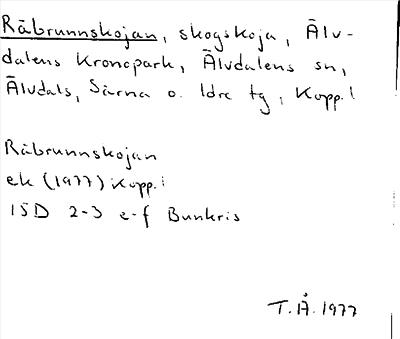 Råbrunnskojan, skogskoja, Älv-
dalens Kronopark, Älvdalens sn,
Älvdals, Särna o. Idre tg, Kopp. l
Råbrunnskojan
ek (1977) Kopp. l
15D 2-3 e-f Bunkris
T.Å. 1977